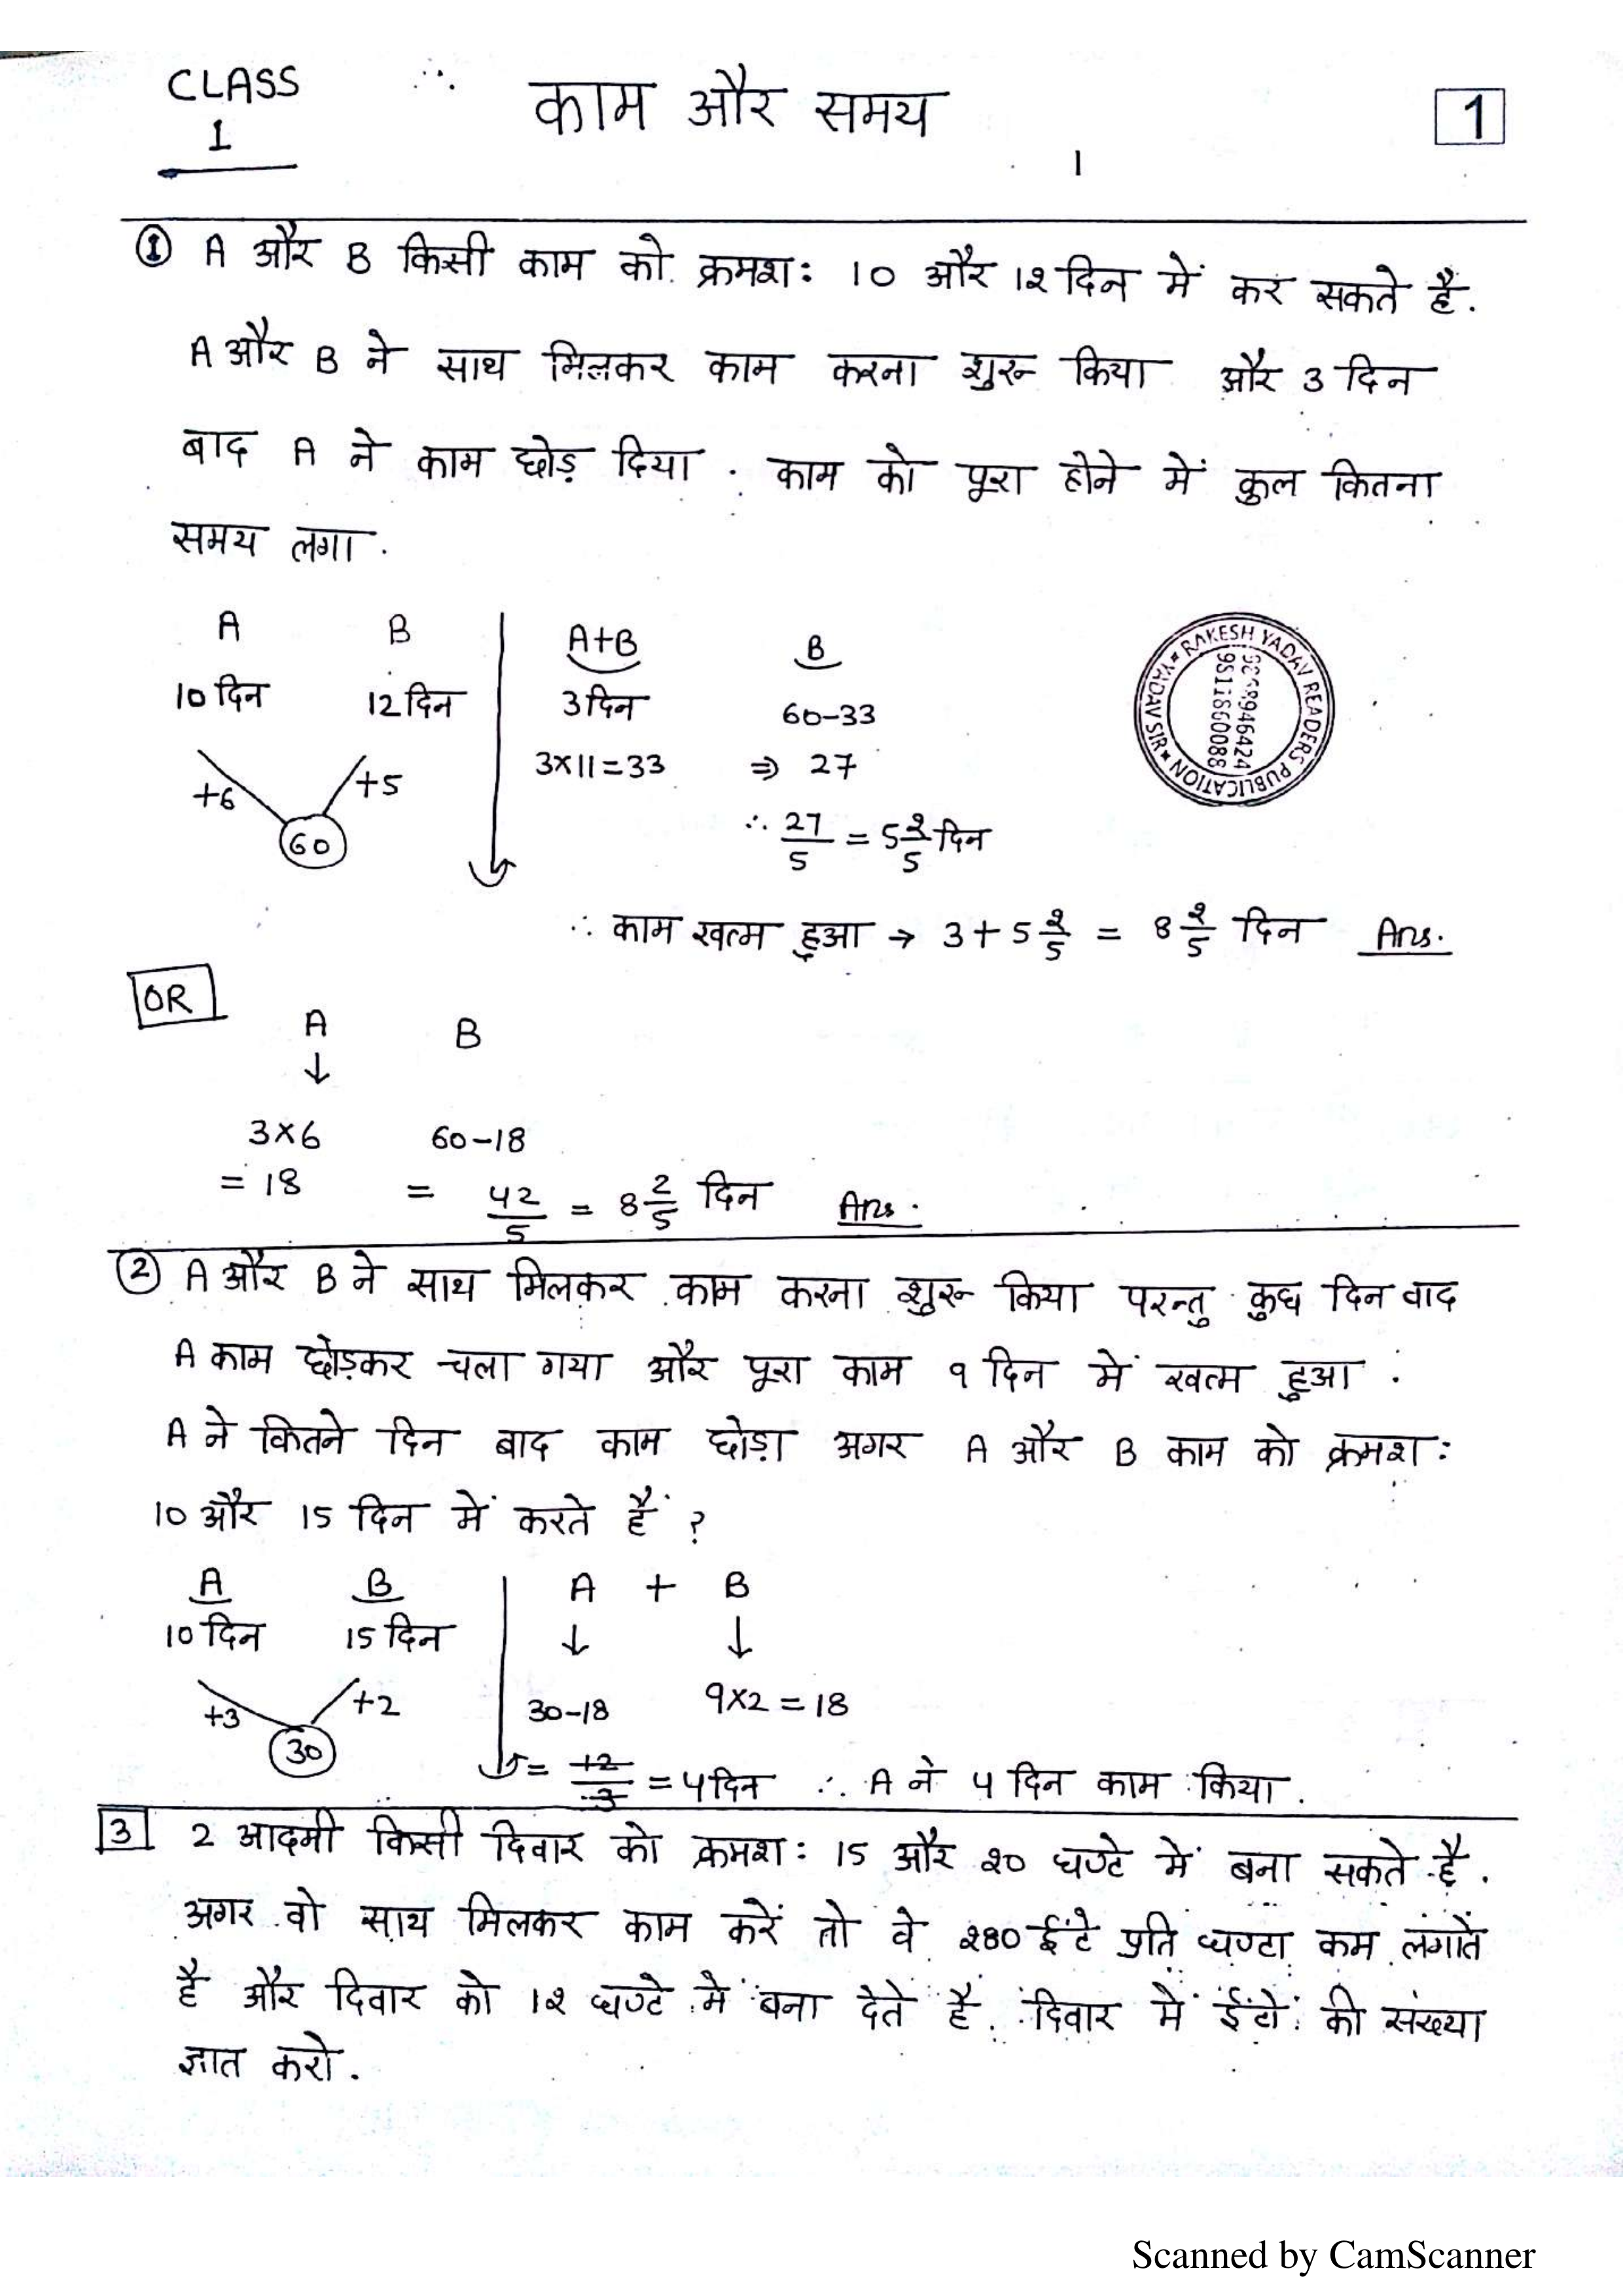 CLASS
1
काम और समय
1
① A और B किसी काम को क्रमशः 10 और 12 दिन में कर सकते है.
A और B ने साथ मिलकर काम करना शुरू किया और 3 दिन
बाद A ने काम छोड़ दिया. काम को पूरा होने में कुल कितना
समय लगा.
A B
10 दिन 12 दिन
+6 +5
60
A+B B
3 दिन 60-33
3×11=33 ⇒ 27
∴ 27/5 = 5 2/5 दिन
RAKESH YADAV READERS PUBLICATION
YADAV SIR
9511860088
∴ काम खत्म हुआ → 3+5 2/5 = 8 2/5 दिन Ans.
OR
A B
↓
3×6 60-18
= 18 = 42/5 = 8 2/5 दिन Ans.
② A और B ने साथ मिलकर काम करना शुरू किया परन्तु कुछ दिन बाद
A काम छोड़कर चला गया और पूरा काम 9 दिन में खत्म हुआ.
A ने कितने दिन बाद काम छोड़ा अगर A और B काम को क्रमशः
10 और 15 दिन में करते हैं ?
A B
10 दिन 15 दिन
+3 +2
30
A + B
↓ ↓
30-18 9×2=18
= 12/3 = 4 दिन ∴ A ने 4 दिन काम किया.
3 2 आदमी किसी दिवार को क्रमशः 15 और 20 घण्टे में बना सकते है.
अगर वो साथ मिलकर काम करें तो वे 280 ईंटे प्रति घण्टा कम लगाते
है और दिवार को 12 घण्टे में बना देते है. दिवार में ईंटों की संख्या
ज्ञात करो.
Scanned by CamScanner